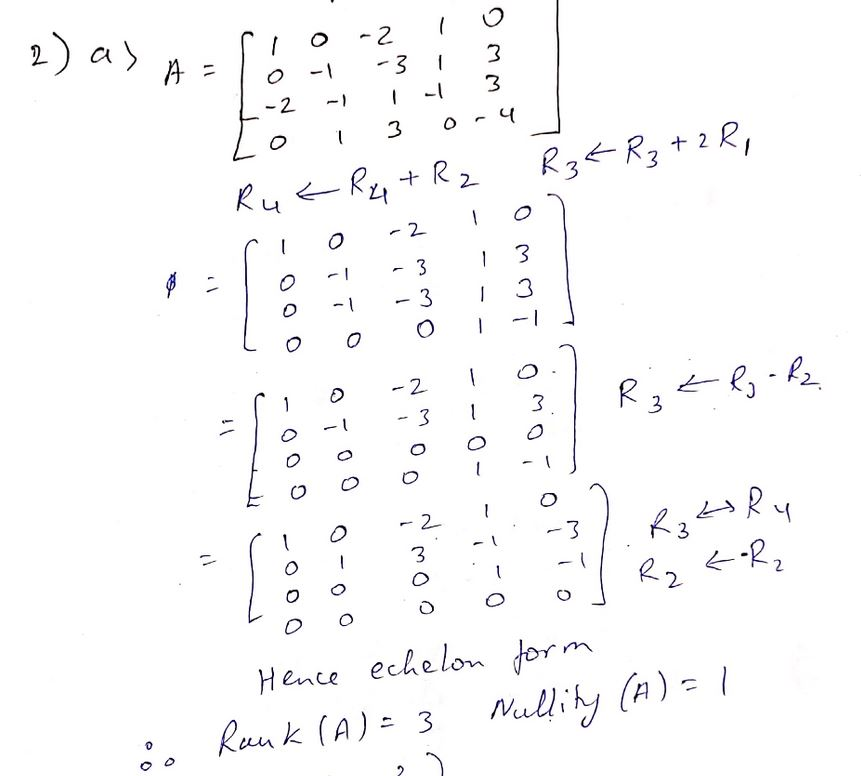 2) a) A = [ 1 0 -2 1 0
0 -1 -3 1 3
-2 -1 1 -1 3
0 1 3 0 -4 ]
R4 ← R4 + R2 R3 ← R3 + 2R1
= [ 1 0 -2 1 0
0 -1 -3 1 3
0 -1 -3 1 3
0 0 0 1 -1 ]
= [ 1 0 -2 1 0
0 -1 -3 1 3
0 0 0 0 0
0 0 0 1 -1 ] R3 ← R3 - R2
= [ 1 0 -2 1 0
0 1 3 -1 -3
0 0 0 1 -1
0 0 0 0 0 ] R3 ↔ R4
R2 ← -R2
Hence echelon form
∴ Rank (A) = 3 Nullity (A) = 1